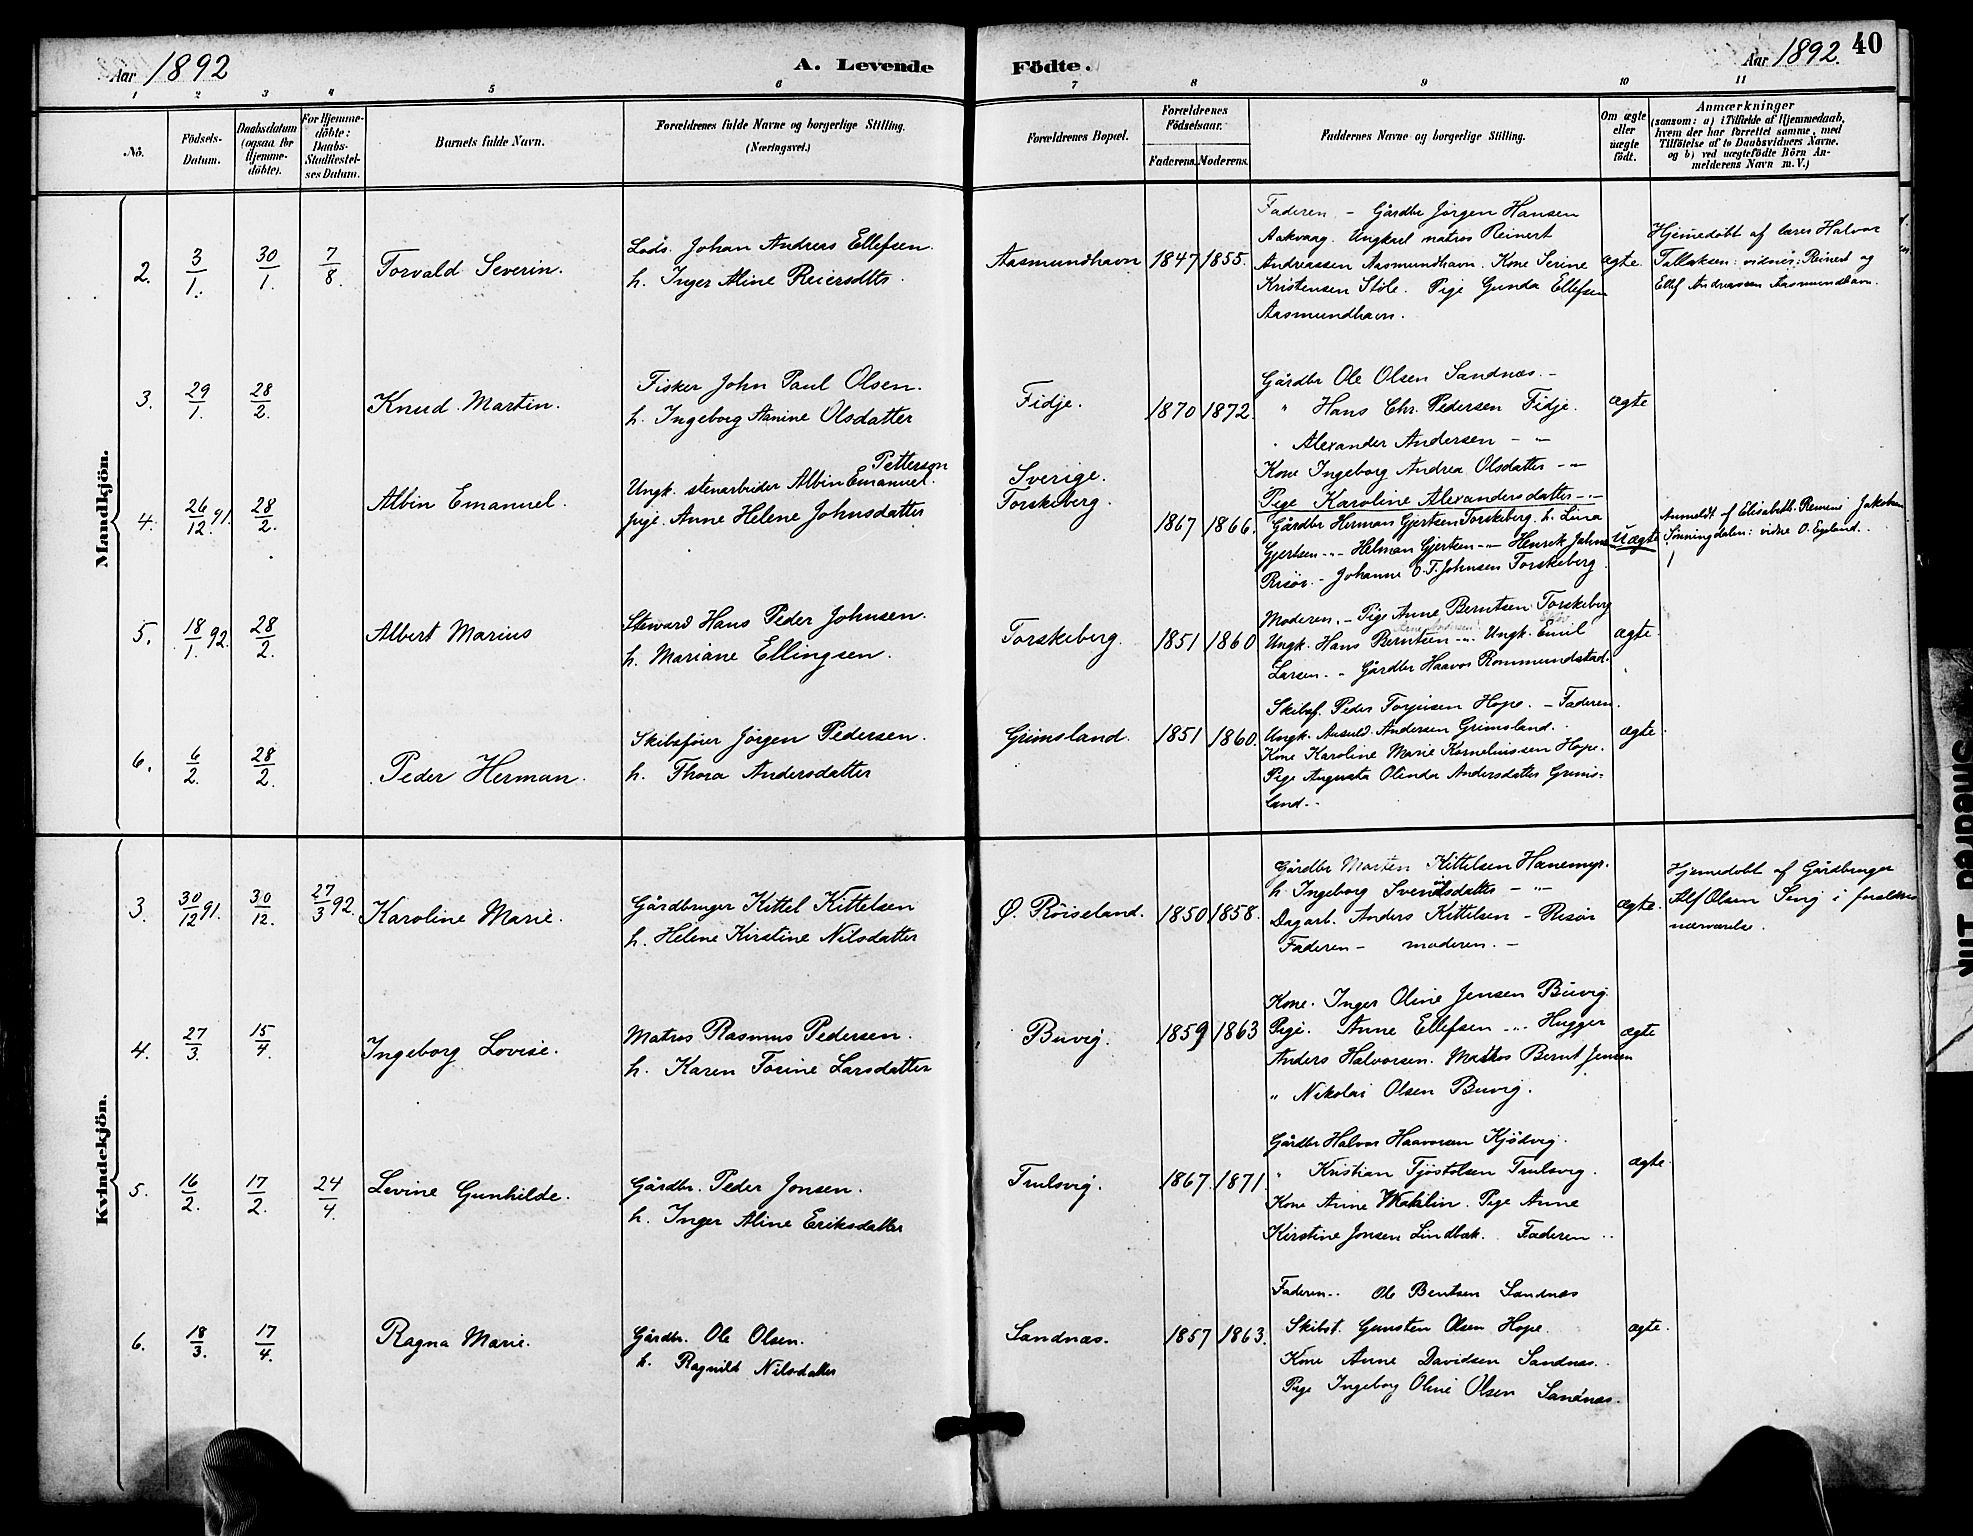 Aar 1892
A. Levende
Födte.
Aar 1892.
40
1 2 3 4 5 6 7 8 9 10 11
No.
Födsels-
Datum.
Daabsdatum
(ogsaa for
Hjemme-
döbte).
For Hjemme-
döbte:
Daabs-
Stadfæstel-
ses Datum.
Barnets fulde Navn.
Forældrenes fulde Navne og borgerlige Stilling.
(Næringsvei.)
Forældrenes Bopæl.
Forældrenes
Födselsaar.
Faderens. Moderens.
Faddernes Navne og borgerlige Stilling.
Om ægte
eller
uægte
födt.
Anmærkninger
(saasom: a) i Tilfælde af Hjemmedaab,
hvem der har forrettet samme, med
Tilföielse af to Daabsvidners Navne,
og b) ved uægtefödte Börn An-
melderens Navn m. V.)
Mandkjön.
2. 3/1. 30/1. 7/8. Torvald Severin.
Lods. Johan Andreas Ellefsen.
h. Inger Aline Reiersdtts.
Aasmundhavn 1847 1855.
Faderen. – Gårdbr Jørgen Hansen
Aakvaag. Ungkarl matros Reinert
Andreassen Aasmundhavn. Kone Serine
Kristensen Støle. Pige Gunda Ellefsen
Aasmundhavn.
ægte.
Hjemedøbt af lærer Halvor
Tallaksen: vidner: Reinert og
Ellef Andreassen Aasmundhavn.
3. 29/1. 28/2. Knud Martin.
Fisker John Paul Olsen.
h. Ingeborg Aanine Olsdatter
Fidje. 1870 1872.
Gårdbr Ole Olsen Sandnæs. –
" Hans Chr. Pedersen Fidje.
" Alexander Andersen – –
Kone Ingeborg Andrea Olsdatter – –
Pige Karoline Alexandersdatter – –
ægte
4. 26/12 91. 28/2. Albin Emanuel.
Petterson
Ungk. stenarbeider Albin Emanuel.
pige. Anne Helene Johnsdatter
Sverige.
Torskeberg. 1867 1866.
Gårdbr Herman Gjertsen Torskeberg. h. Lina
Gjertsen – " – Helman Gjertsen – " – Henrik Johns
Risør. – Johanne O. T. Johnsen Torskeberg
Uægte
Anmeldt af Elisabeth Jakobsen
Sønningdalen: vidne O. Egeland.
5. 18/1 92. 28/2. Albert Marius
Steward Hans Peder Johnsen.
h. Mariane Ellingsen.
Torskeberg. 1851 1860
Moderen. – Pige Anne Berntsen Torskeberg
Ungk. Hans Berntsen – " – Ungk. Emil
Larsen. – Gårdbr Haavor Rommundstad.
ægte.
6. 6/2. 28/2. Peder Herman.
Skibsfører Jørgen Pedersen.
h. Thora Andersdatter
Grimsland. 1851 1860.
Skibsf. Peder Torjusen Hope. – Faderen.
Ungk. Aanuld Andersen Grimsland.
Kone Karoline Marie Korneliussen Hope.
Pige Augusta Olinda Andersdatter Grims-
land.
ægte.
Kvindekjön.
3. 30/12 91. 30/12. 27/3 92. Karoline Marie.
Gårdbruger Kittel Kittelsen
h. Helene Kirstine Nilsdatter
Ø. Röiseland. 1850 1858.
Gårdbr Morten Kittelsen Hanemyr.
h. Ingeborg Svendsdatter – " –
Dagarb. Anders Kittelsen – Risør
Faderen – moderen. –
ægte.
Hjemedøbt af Gårdbruger
Alf Olsen i
nærværelse.
4. 27/3. 15/4. Ingeborg Lovise.
Matros Rasmus Pedersen.
h. Karen Tosine Larsdatter
Buvig. 1859 1863
Kone. Inger Oline Jensen Buvig.
Pige. Anne Ellefsen – " – Hugger
Anders Halvorsen. Matros Bernt Jensen
" Nikolai Olsen Buvig.
ægte
5. 16/2. 17/2. 24/4. Levine Gunhilde.
Gårdbr. Peder Jonsen.
h. Inger Aline Eriksdatter
Trulsvig. 1867. 1871.
Gårdbr Halvor Haavorsen Kjødvig.
" Kristian Tjöstolsen Trulsvig.
Kone Anne Pige Anne
Kirstine Jonsen Lindbak. Faderen
ægte.
6. 18/3. 17/4. Ragna Marie.
Gårdbr. Ole Olsen.
h. Ragnild Nilsdatter
Sandnæs. 1857 1863.
Faderen. – Ole Bentsen Sandnæs
Skibst. Gunsten Olsen Hope.
Kone Anne Davidsen Sandnæs.
Pige Ingeborg Oline Olsen Sandnæs.
ægte.